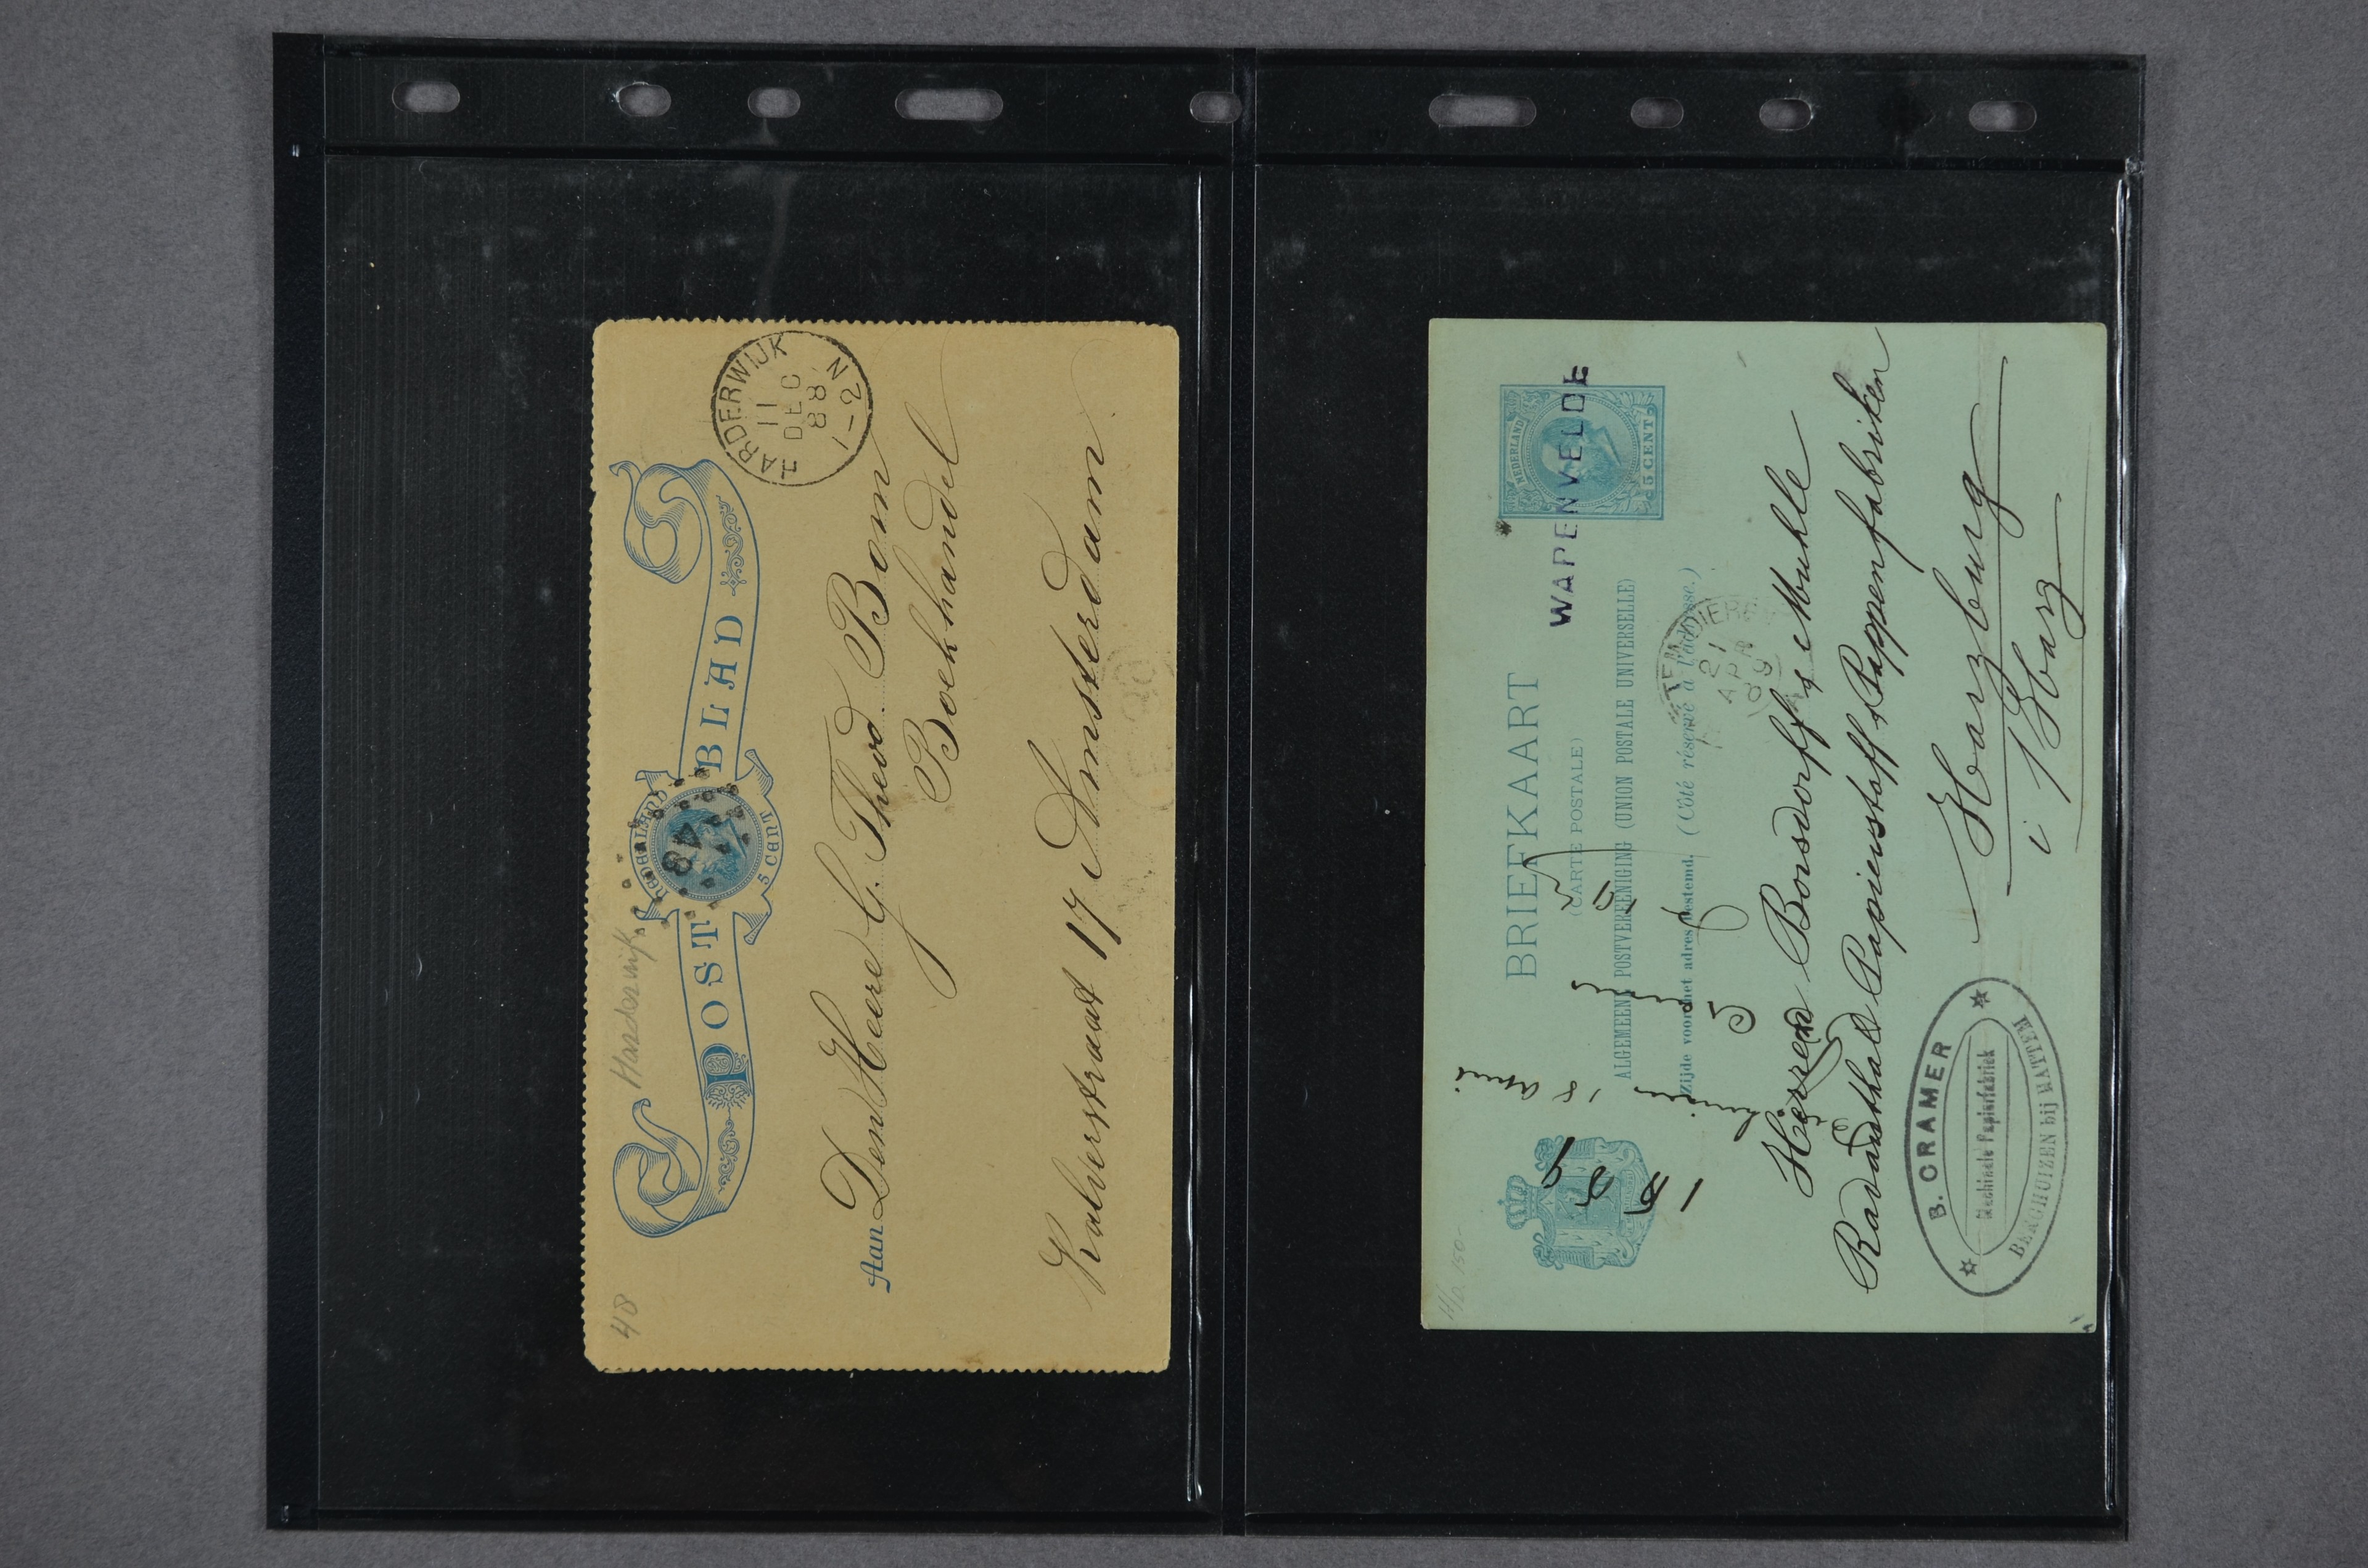 48
Harderwijk
NEDERLAND
POSTBLAD
5 CENT
48
HARDERWIJK
11
DEC
88
1-2N
Aan Den Heere G. Theod. Bom
Boekhandel
Kalverstraat 17 Amsterdam.
150-
BRIEFKAART
(CARTE POSTALE)
ALGEMEENE POSTVEREENIGING (UNION POSTALE UNIVERSELLE)
Zijde voor het adres bestemd. (Côté réservé à l'adresse.)
NEDERLAND
5 CENT
WAPENVELDE
21
APR
89
18 April
1889
Herren Bonsdorff & Muhle
Radauthaler Papierstoff & Pappenfabriken
Harzburg
i/Harz
B. CRAMER
Machinale Papierfabriek
BERGHUIZEN bij HATTEM